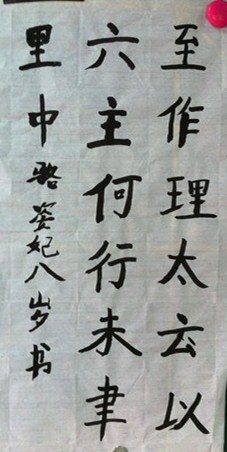 至作理太云以
六主何行未聿
里中骆姿妃八岁书